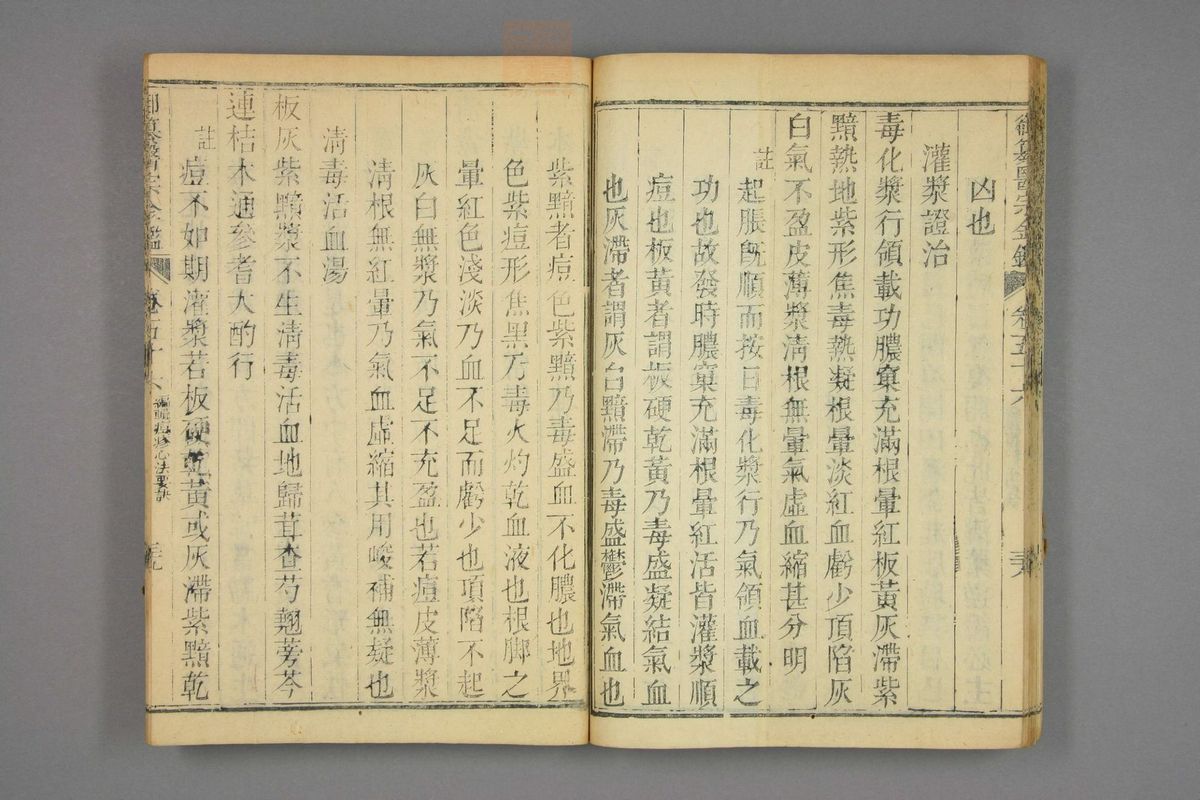 御纂醫宗金鑑 卷五十六
凶也
灌漿證治
毒化漿行領載功膿窠充滿根暈紅板黃灰滯紫
黯熱地紫形焦毒熱凝根暈淡紅血虧少頂陷灰
白氣不盈皮薄漿清根無暈氣虛血縮甚分明
註
起脹既順而按日毒化漿行乃氣領血載之
功也故發時膿窠充滿根暈紅活皆灌漿順
痘也板黃者謂板硬乾黃乃毒盛凝結氣血
也灰滯者謂灰白黯滯乃毒盛鬱滯氣血也
紫黯者痘色紫黯乃毒盛血不化膿也地界
色紫痘形焦黑乃毒火灼乾血液也根脚之
暈紅色淺淡乃血不足而虧少也項陷不起
灰白無漿乃氣不足不充盈也若痘皮薄漿
清根無紅暈乃氣血虛縮其用峻補無疑也
清毒活血湯
板灰紫黯漿不生清毒活血地歸茸查芍翹蒡芩
連桔木通參耆大酌行
註
痘不如期灌漿若板硬乾黃或灰滯紫黯乾
御纂醫宗金鑑 卷五十六 編輯痘疹心法要訣